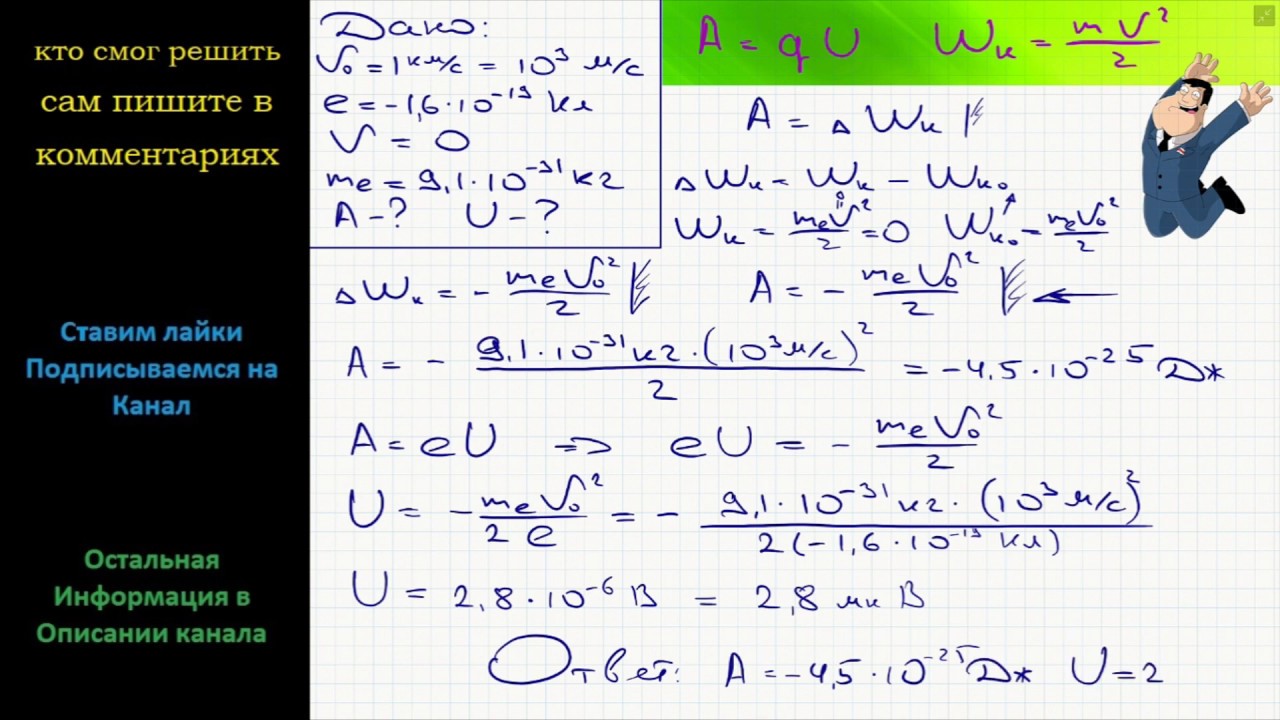 кто смог решить
сам пишите в
комментариях
Ставим лайки
Подписываемся на
Канал
Остальная
Информация в
Описании канала
Дано:
V₀ = 1 км/с = 10³ м/с
e = -1,6·10⁻¹⁹ Кл
V = 0
me = 9,1·10⁻³¹ кг
A - ? U - ?
A = qU Wк = mV²/2
A = ΔWк
ΔWк = Wк - Wк₀
Wк = meV²/2 = 0 Wк₀ = meV₀²/2
ΔWк = - meV₀²/2 A = - meV₀²/2
A = - 9,1·10⁻³¹кг·(10³м/с)²/2 = -4,5·10⁻²⁵ Дж
A = eU => eU = - meV₀²/2
U = - meV₀²/2e = - 9,1·10⁻³¹кг·(10³м/с)²/2(-1,6·10⁻¹⁹ Кл)
U = 2,8·10⁻⁶ В = 2,8 мкВ
Ответ: A = -4,5·10⁻²⁵ Дж U = 2